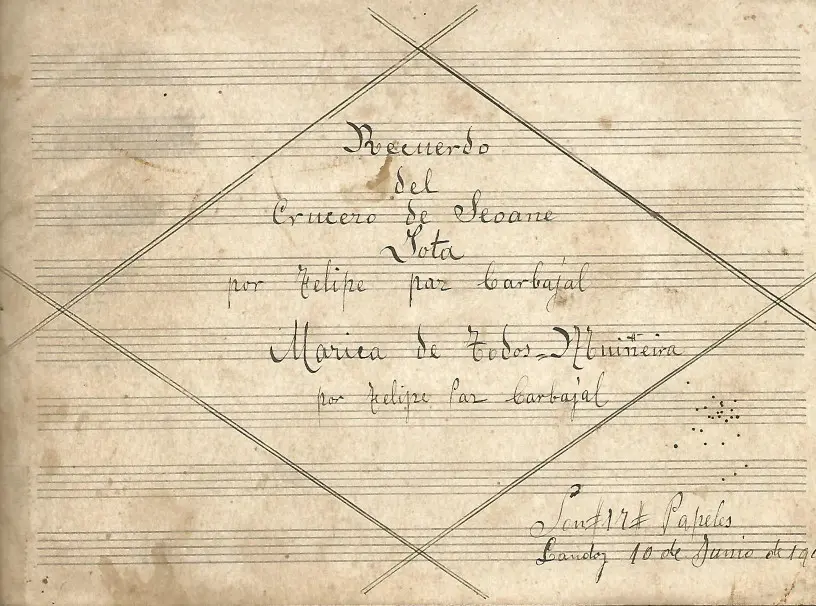 Recuerdo
del
Crucero de Seoane
Jota
por Felipe paz Carbajal
Marica de Todos=Muiñeira
por Felipe Paz Carbajal
Son #17# Papeles
Landoy 10 de Junio de 19